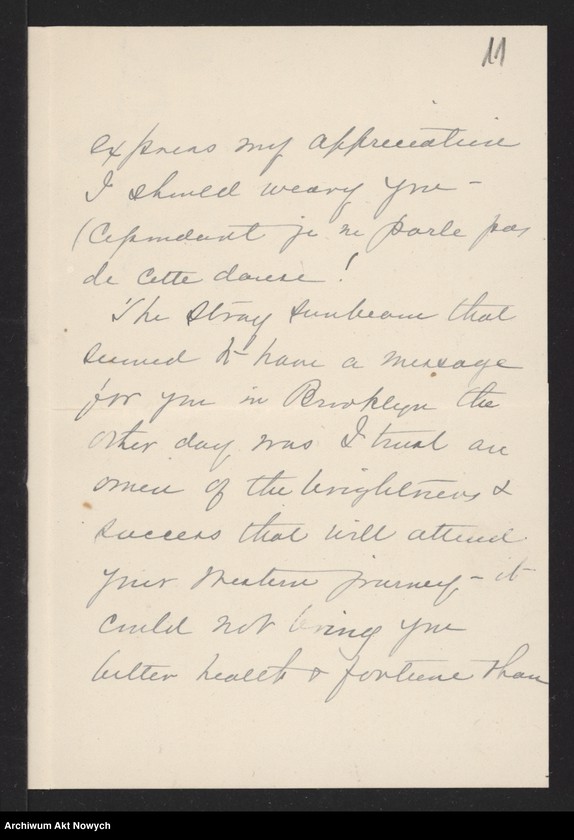 11
express my appreciation
I should weary you -
(Cependant je ne parle pas
de cette danse!
The stray sunbeam that
seemed to have a message
for you in Brooklyn the
other day was I trust an
omen of the brightness &
success that will attend
your Western journey - it
could not bring you
better health & fortune than
Archiwum Akt Nowych